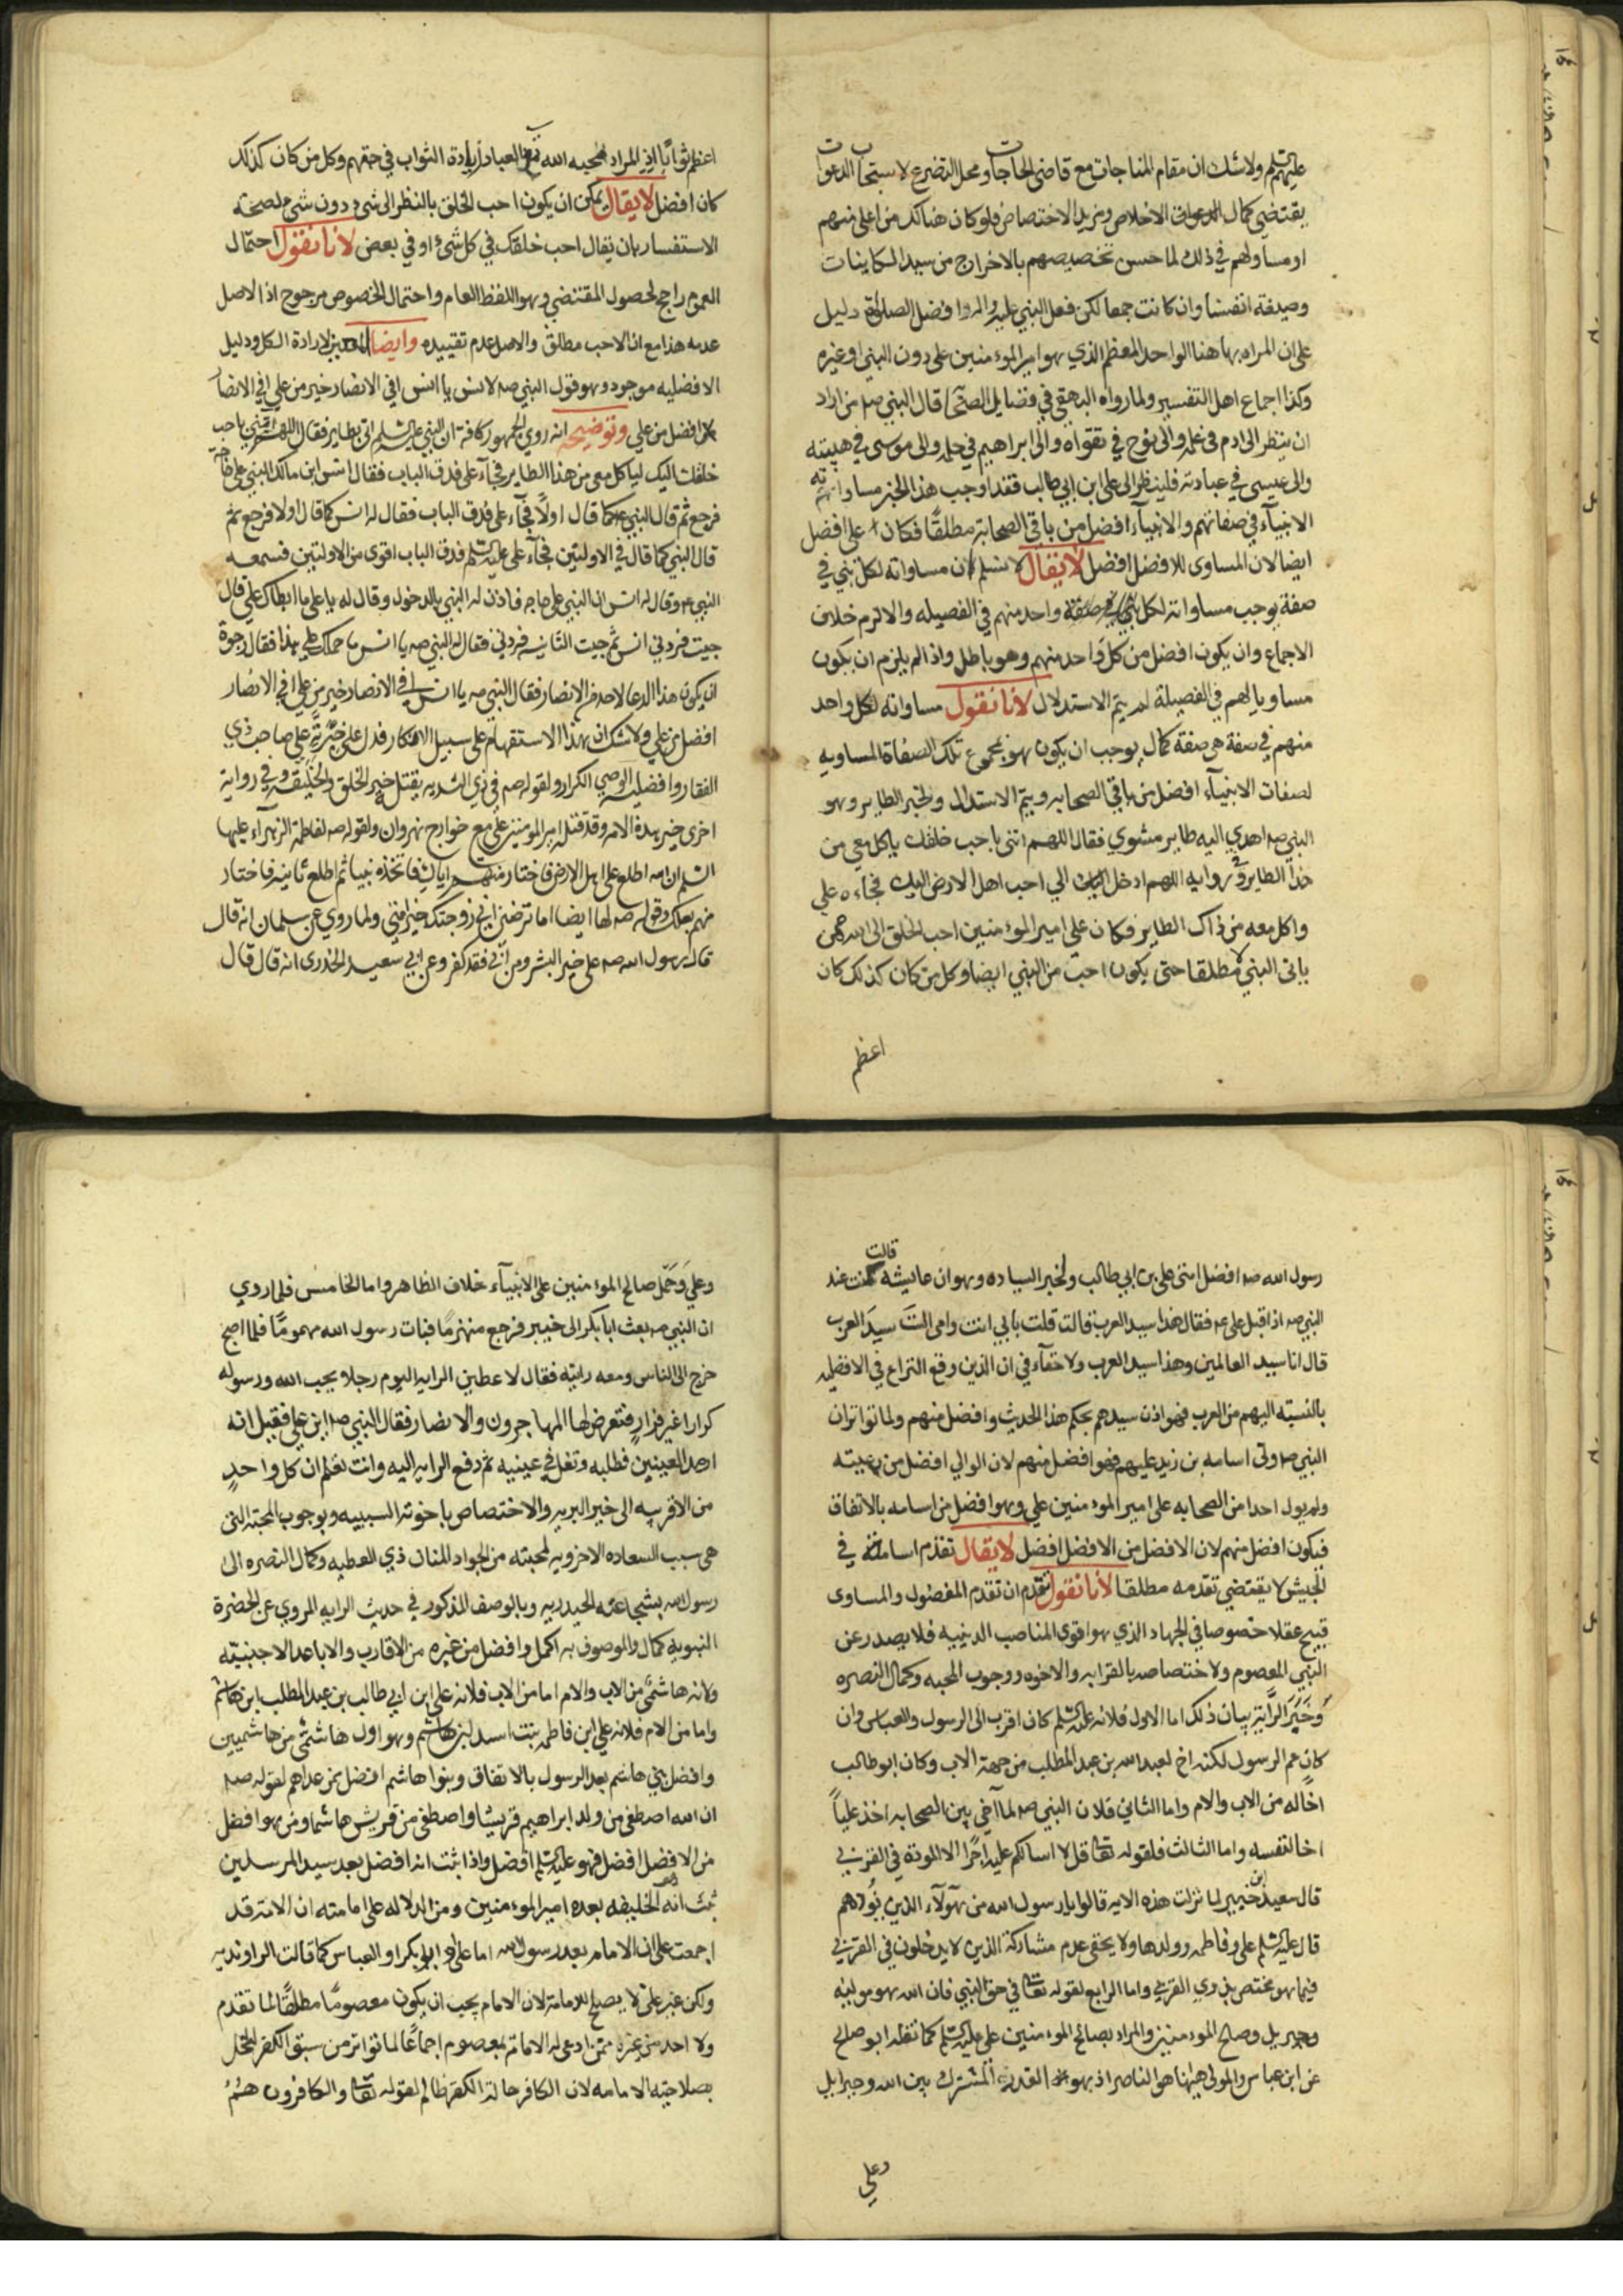 عليهم السلم ولا شك ان مقام المناجات مع قاضى الحاجات ومحل التضرع لاستجابت الدعوات
يقتضى كمال الاخلاص ومزيد الاختصاص فلو كان هناك من اعلى منهم
او مساو لهم في ذلك لما حسن تخصيصهم بالاخراج من سيد الكاينات
وصيغة انفسنا وان كانت جمعا لكن فعل النبي عليه واله افضل الصلوة دليل
على ان المراد بها هنا الواحد المعظم الذي هو امير الموءمنين على دون النبى او غيره
وكذا اجماع اهل التفسير ولما رواه البهقى في فضايل الصحابة قال النبي صم من اراد
ان ينظر الى ادم فى علمه والى نوح في تقواه والى ابراهيم في حلمه والى موسى في هيبته
والى عيسى في عبادته فلينظر الى على ابن ابي طالب فقد اوجب هذا الخبر مساواته
الانبيآء في صفاتهم والانبيآء افضل من باقى الصحابة مطلقًا فكان على افضل
ايضا لان المساوى للافضل افضل لا يقال لا نسلم ان مساواته لكل نبي في
صفة يوجب مساواته لكل نبي واحد منهم في الفضيله والا لزم خلاف
الاجماع وان يكون افضل من كل واحد منهم وهو باطل واذا لم يلزم ان يكون
مساويا لهم في الفضيلة لم يتم الاستدلال لانا نقول مساواته لكل واحد
منهم في صفة هى صفة كمال يوجب ان يكون هو بمجموع تلك الصفاة المساويه
لصفات الانبيآء افضل من باقي الصحابه ويتم الاستدلال ولخبر الطاير وهو
النبي صم اهدي اليه طاير مشوي فقال اللهم ائتنى باحب خلقك ياكل معي من
هذا الطاير وفى روايه اللهم ادخل الي احب اهل الارض اليك فجاءه علي
واكل معه من ذاك الطاير فكان على امير الموءمنين احب الخلق الى الله من
باقى النبي لا مطلقا حتى يكون احب من النبي ايضا وكل من كان كذلك كان
اعظم
اعظم ثوابًا اذ المراد بمحبه الله تع العباد زيادة الثواب في حقهم وكل من كان كذلك
كان افضل لا يقال يمكن ان يكون احب الخلق بالنظر الى شى دون شى ء لصحة
الاستفسار بان يقال احب خلقك في كل شىء او في بعض لانا نقول احتمال
العموم راجح لحصول المقتضي وهو اللفظ العام واحتمال الخصوص مرجوح اذ الاصل
عدمه هذا مع ان الاحب مطلق والاصل عدم تقييده وايضا لارادة الكل ودليل
الافضليه موجود وهو قول النبي صم لانس يا انس افي الانصار خير من علي افي الانصار
افضل من علي وتوضيحه انه روي الجمهور كافة ان النبي عليه السلم اتى بطاير فقال اللهم ائتنى باحب
خلقك اليك لياكل معى من هذا الطاير فجآء على فدق الباب فقال انس ابن مالك النبي على حاجة
فرجع ثم قال النبي كما قال اولًا فجآء على فدق الباب فقال له انس كما قال اولا فرجع ثم
قال النبي كما قال في الاولتين فجآء على عليه السلم فدق الباب اقوى من الاولتين فسمعه
النبي ع وقال له انس ان النبي على حاجه فاذن له النبي بالدخول وقال له يا على ما ابطاك عني قال
جيت فردني انس ثم جيت الثانيه فردني فقال له النبي صم يا انس ما حملك على هذا فقال رجوة
ان يكون هذا الدعا لاحد من الانصار فقال النبي صم يا انس افي الانصار خير من علي افي الانصار
افضل من علي ولا شك ان هذا الاستفهام على سبيل الانكار فدل على خيريّة علي صاحب ذي
الفقار وافضليه الوصي الكرار ولقوله صم فى ذي الثديه يقتله خير الخلق والخليقه وفي رواية
اخرى خير هذه الامه وقد قتله امير المومنين علي مع خوارج نهروان ولقوله صم لفاطمة الزهرآء عليها
السلم ان الله اطلع على اهل الارض فاختار منهم اباك فاتخذه نبيا ثم اطلع ثانية فاختار
منهم بعلك وقوله صم لها ايضا اما ترضين اني زوجتك خير امتي ولما روي عن سلمان انه قال
قال رسول الله صم على خير البشر ومن ابي فقد كفر وعن ابي سعيد الخدرى انه قال قال
رسول الله صم افضل امتى على بن ابي طالب ولخبر السياده وهو ان عايشه قالت كنت عند
النبي صم اذ اقبل على عم فقال هذا سيد العرب قالت قلت بأبي انت وامى الستَ سيدَ العرب
قال انا سيد العالمين وهذا سيد العرب ولا خفآء في ان الذين وقع النزاع في الافضليه
بالنسبة اليهم من العرب فهو اذن سيدهم بحكم هذا الحديث وافضل منهم ولما تواتر ان
النبي صم ولى اسامه بن زيد عليهم فهو افضل منهم لان الوالي افضل من رعيته
ولم يول احدا من الصحابه على امير الموءمنين علي وهو افضل من اسامه بالاتفاق
فيكون افضل منهم لان الافضل من الافضل افضل لا يقال تقدم اسامة في
الجيش لا يقتضي تقدمه مطلقا لانا نقول تقدم ان تقدم المفضول والمساوى
قبيح عقلا خصوصا في الجهاد الذي هو اقوى المناصب الدينيه فلا يصدر عن
النبي المعصوم ولاختصاصه بالقرابه والاخوه ووجوب المحبه وكمال النصره
وَخَبَر الرَّاية بيان ذلك اما الاول فلانه عليه السلم كان اقرب الى الرسول والعباس وان
كان عم الرسول لكنه اخ لعبد الله بن عبد المطلب من جهة الاب وكان ابو طالب
اخًا له من الاب والام واما الثاني فلان النبي صم لما آخي بين الصحابه اخذ عليّاً
اخا لنفسه واما الثالث فلقوله تعا قل لا اسالكم عليه اجرًا الا المودة في القربي
قال سعيد ابن جبير لما نزلت هذه الايه قالوا يا رسول الله من هولآء الذين نودهم
قال عليه السلم على وفاطمه وولدها ولا يخفى عدم مشاركة الذين لا يدخلون في القربي
فيما هو مختص بذوي القربي واما الرابع لقوله تعا في حق النبي فان الله هو موليه
وجبريل وصلح الموءمنين والمراد بصالح الموءمنين على عليه السلم كما نقله ابو صالح
عن ابن عباس والمولى هيهنا هو الناصر اذ هو القدر المشترك بين الله وجبرايل
وعلي
وعلي وَحَمْل صالح الموءمنين على الانبيآء خلاف الظاهر واما الخامس فلما روي
ان النبي صم بعث ابا بكر الى خيبر فرجع منهزمًا فبات رسول الله مهمومًا فلما اصبح
خرج الى الناس ومعه رايته فقال لاعطين الرايه اليوم رجلا يحب الله ورسوله
كرارا غير فرار فتعرض لها المهاجرون والانصار فقال النبي صم اين علي فقيل انه
ارمد العينين فطلبه وتفل في عينيه ثم دفع الرايه اليه وانت تعلم ان كل واحدٍ
من الاقربيه الى خير البريه والاختصاص باخوته السببيه وبوجوب المحبة التى
هى سبب السعاده الاخرويه لمحبته من الجواد المنان ذي العطيه وكمال النصره الى
رسول الله بشجاعته الحيدريه وبالوصف المذكور في حديث الرايه المروي عن الحضرة
النبويه كمال والموصوف به اكمل وافضل من غيره من الاقارب والاباعد الاجنبيّه
ولانه هاشمّى من الاب والام اما من الاب فلانه علي ابن ابي طالب بن عبد المطلب ابن هاشم
واما من الام فلانه علي ابن فاطمه بنت اسد ابن هاشم وهو اول هاشمّى من هاشميين
وافضل بني هاشم بعد الرسول بالاتفاق وبنوا هاشم افضل من عداهم لقوله صم
ان الله اصطفى من ولد ابراهيم قريشا واصطفى من قريش هاشما ومن هو افضل
من الافضل افضل فهو عليه السلم افضل واذا ثبت انه افضل بعد سيد المرسلين
ثبت انه هو الخليفه بعده امير الموءمنين ومن الدلاله على امامته ان الامة قد
اجمعت على ان الامام بعد رسول الله اما على او ابو بكر او العباس كما قالت الراونديه
ولكن غير على لا يصلح للامامة لان الامام يجب ان يكون معصومًا مطلقًا لما تقدم
ولا احد من غيره ممن ادعى له الامامة بمعصوم اجماعًا لما تواتر من سبق الكفر المخل
بصلاحيه الامامه لان الكافر حالة الكفر ظالم لقوله تعا والكافرون هُمُ